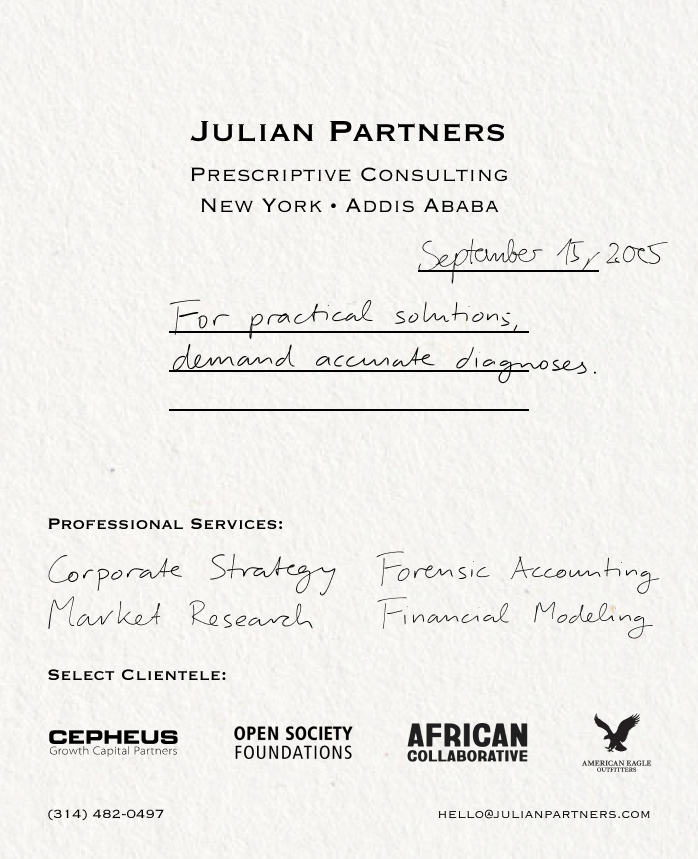 JULIAN PARTNERS
PRESCRIPTIVE CONSULTING
NEW YORK • ADDIS ABABA
September 15, 2005
For practical solutions,
demand accurate diagnoses.
PROFESSIONAL SERVICES:
Corporate Strategy Forensic Accounting
Market Research Financial Modeling
SELECT CLIENTELE:
CEPHEUS
Growth Capital Partners
OPEN SOCIETY
FOUNDATIONS
AFRICAN
COLLABORATIVE
AMERICAN EAGLE
OUTFITTERS
(314) 482-0497 HELLO@JULIANPARTNERS.COM